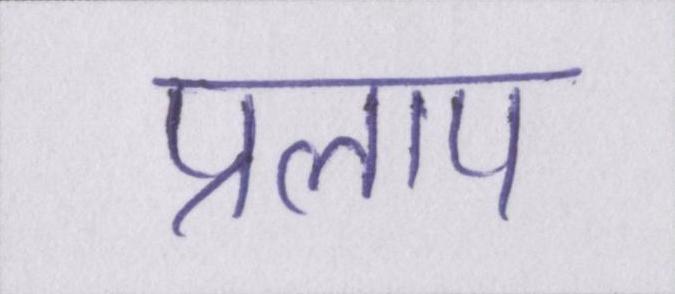 प्रलाप